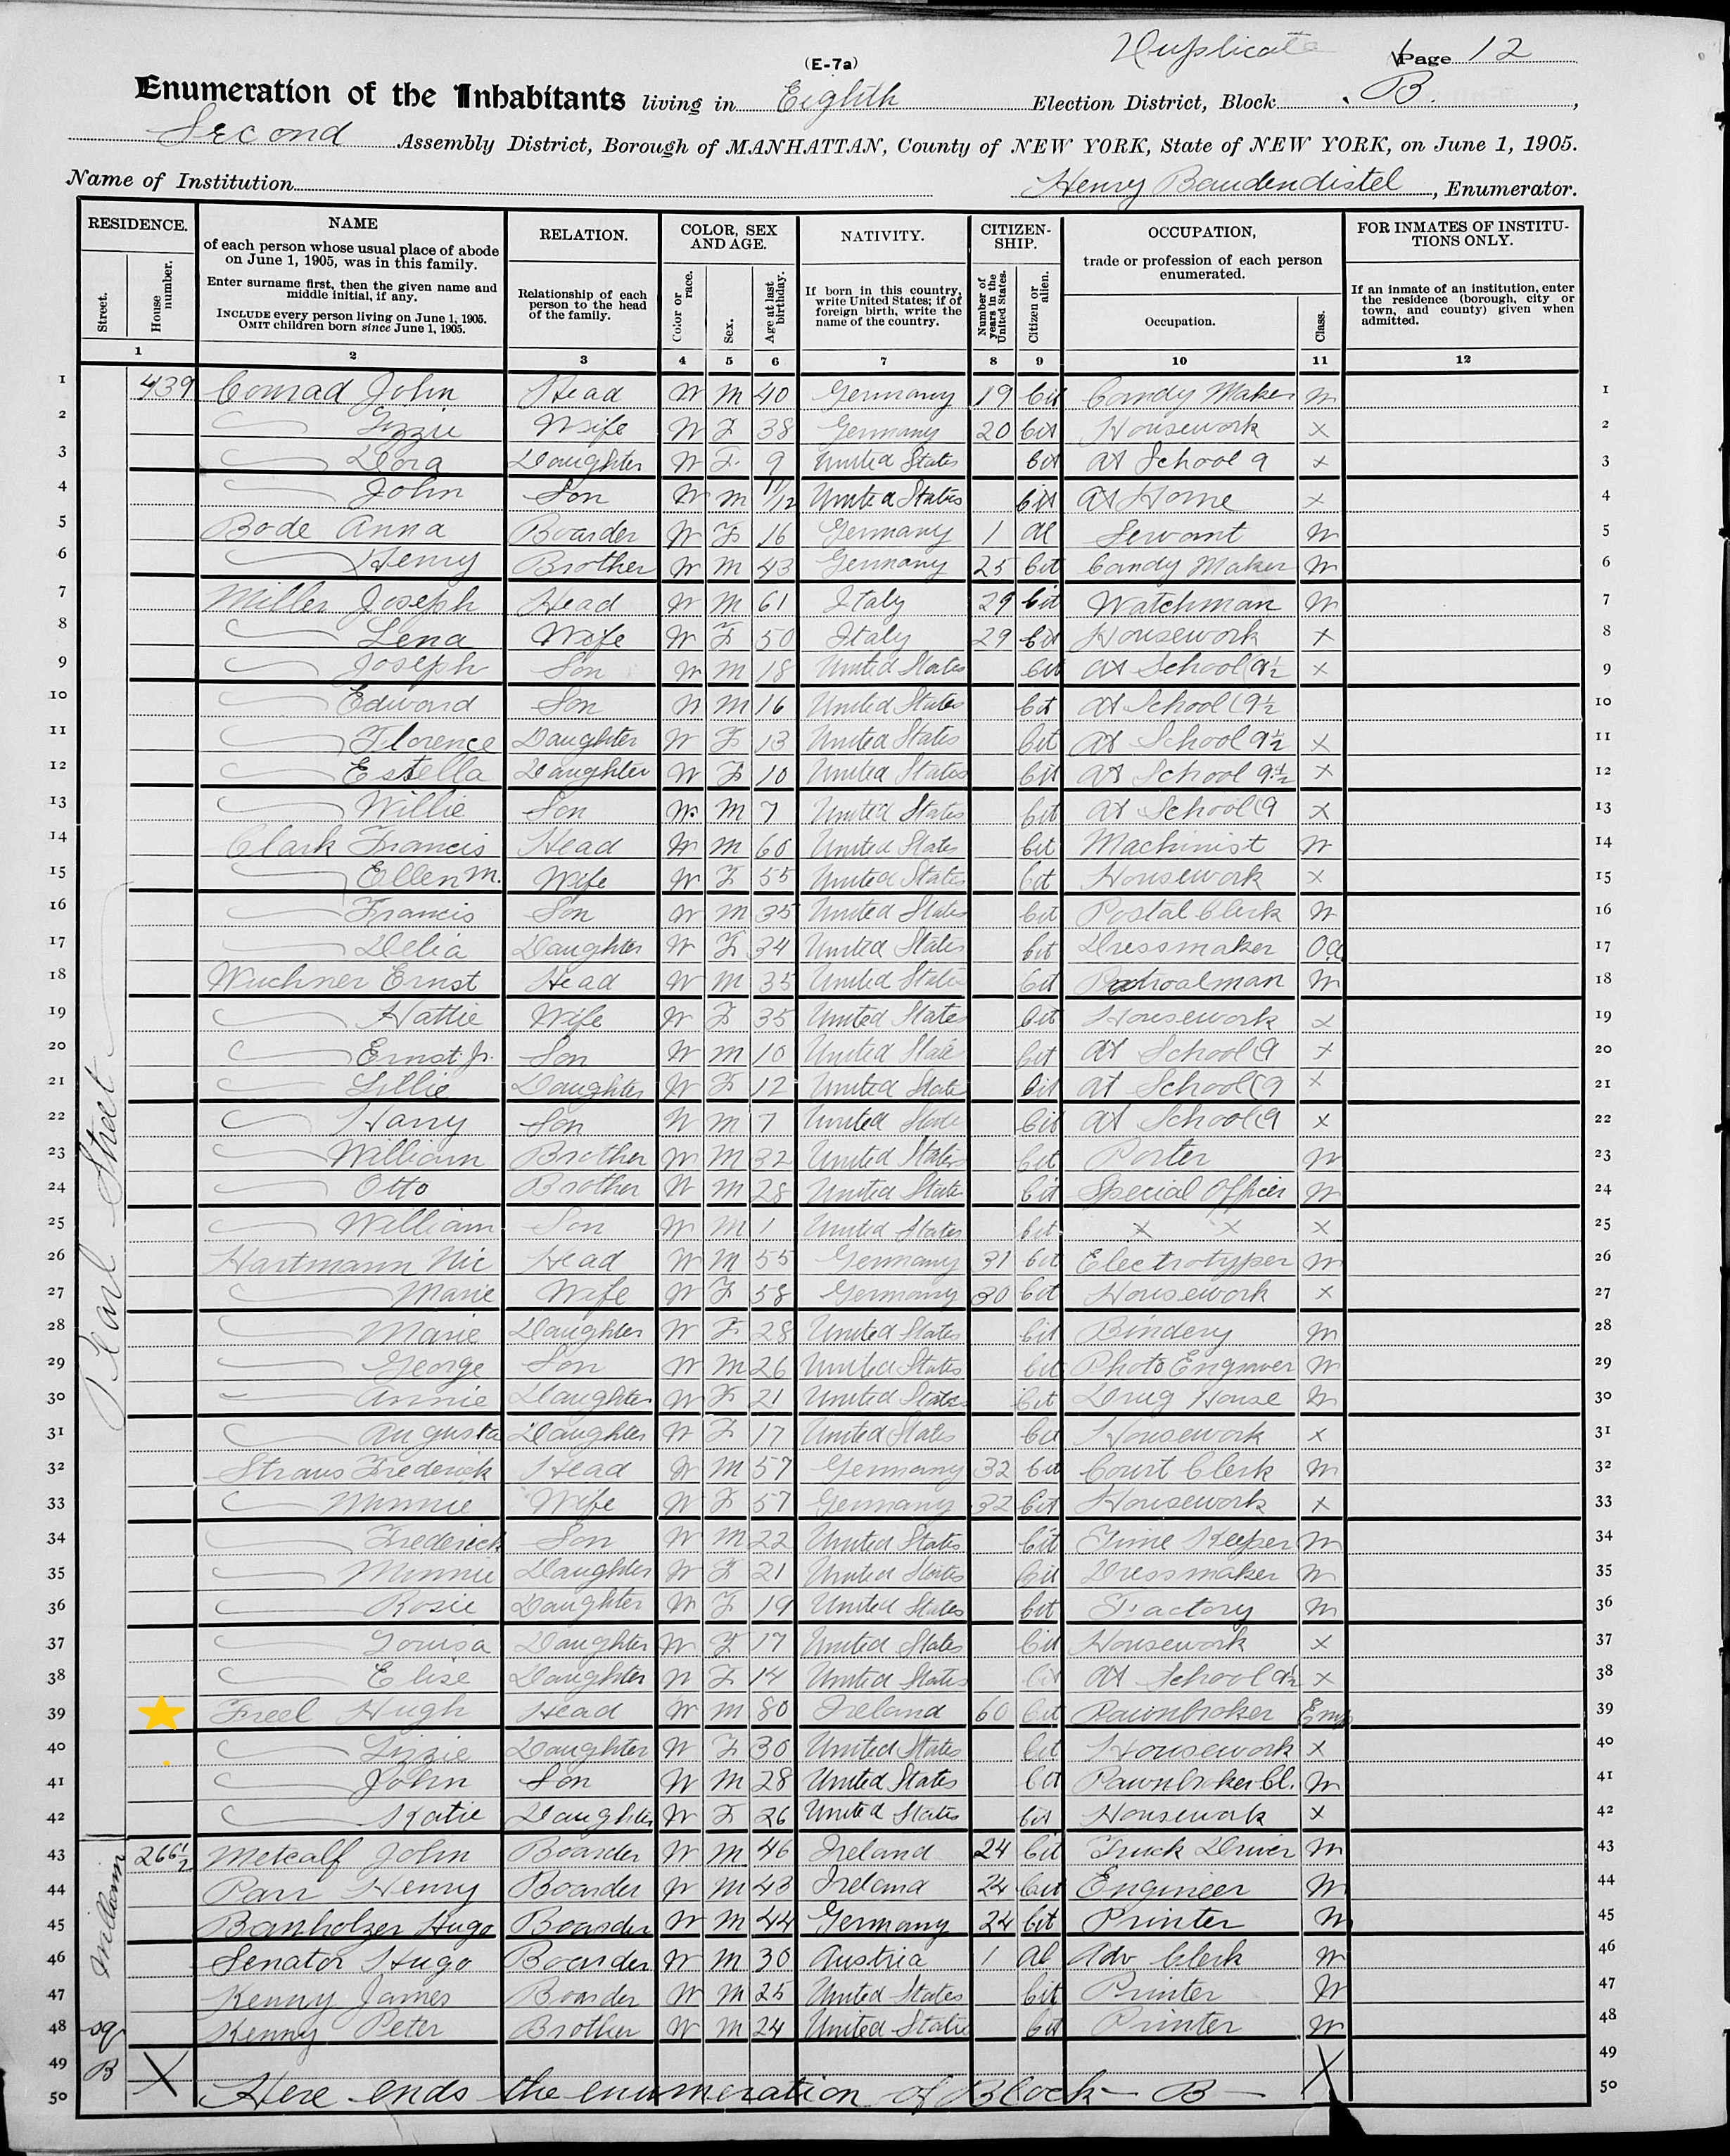 Duplicate
(E-7a)
Page 12
Enumeration of the Inhabitants living in Eighth Election District, Block B.,
Second Assembly District, Borough of MANHATTAN, County of NEW YORK, State of NEW YORK, on June 1, 1905.
Name of Institution Henry Baudendistel, Enumerator.
RESIDENCE. NAME of each person whose usual place of abode on June 1, 1905, was in this family. Enter surname first, then the given name and middle initial, if any. INCLUDE every person living on June 1, 1905. OMIT children born since June 1, 1905. RELATION. Relationship of each person to the head of the family. COLOR, SEX AND AGE. NATIVITY. If born in this country, write United States; if of foreign birth, write the name of the country. CITIZENSHIP. OCCUPATION, trade or profession of each person enumerated. FOR INMATES OF INSTITUTIONS ONLY. If an inmate of an institution, enter the residence (borough, city or town, and county) given when admitted.
Street. House number. Color or race. Sex. Age at last birthday. Number of years in the United States. Citizen or alien. Occupation. Class.
1 2 3 4 5 6 7 8 9 10 11 12
Pearl Street
1 439 Conrad John Head W M 40 Germany 19 Cit Candy Maker W 1
2 Lizzie Wife W F 38 Germany 20 Cit Housework X 2
3 Dora Daughter W F 9 United States Cit at School 9 X 3
4 John Son W M 11/12 United States Cit at Home X 4
5 Bode Anna Boarder W F 16 Germany 1 Al Servant W 5
6 Henry Brother W M 43 Germany 25 Cit Candy Maker W 6
7 Miller Joseph Head W M 61 Italy 29 Cit Watchman W 7
8 Lena Wife W F 50 Italy 29 Cit Housework X 8
9 Joseph Son W M 18 United States Cit at School (9½ X 9
10 Edward Son W M 16 United States Cit at School (9½ 10
11 Florence Daughter W F 13 United States Cit at School 9½ X 11
12 Estella Daughter W F 10 United States Cit at School 9½ X 12
13 Willie Son W M 7 United States Cit at School (9 X 13
14 Clark Francis Head W M 60 United States Cit Machinist W 14
15 Ellen M. Wife W F 55 United States Cit Housework X 15
16 Francis Son W M 35 United States Cit Postal Clerk W 16
17 Delia Daughter W F 34 United States Cit Dressmaker Oa 17
18 Wuchner Ernst Head W M 35 United States Cit Patroalman W 18
19 Hattie Wife W F 35 United States Cit Housework X 19
20 Ernst Jr. Son W M 10 United State Cit at School (9 X 20
21 Lillie Daughter W F 12 United State Cit at School (9 X 21
22 Harry Son W M 7 United State Cit at School (9 X 22
23 William Brother W M 32 United States Cit Porter W 23
24 Otto Brother W M 28 United State Cit Special Officer W 24
25 William Son W M 1 United States Cit X X X 25
26 Hartmann Nic Head W M 55 Germany 31 Cit Electrotyper W 26
27 Marie Wife W F 58 Germany 30 Cit Housework X 27
28 Marie Daughter W F 28 United States Cit Bindery W 28
29 George Son W M 26 United States Cit Photo Engraver W 29
30 Annie Daughter W F 21 United States Cit Drug House W 30
31 Augusta Daughter W F 17 United States Cit Housework X 31
32 Straus Frederick Head W M 57 Germany 32 Cit Court Clerk W 32
33 Minnie Wife W F 57 Germany 32 Cit Housework X 33
34 Frederick Son W M 22 United States Cit Time Keeper W 34
35 Minnie Daughter W F 21 United States Cit Dressmaker W 35
36 Rosie Daughter W F 19 United States Cit Factory W 36
37 Louisa Daughter W F 17 United States Cit Housework X 37
38 Elise Daughter W F 14 United States Cit at School 9½ X 38
39 Freel Hugh Head W M 80 Ireland 60 Cit Pawnbroker Emp 39
40 Lizzie Daughter W F 30 United States Cit Housework X 40
41 John Son W M 28 United States Cit Pawnbroker Cl. W 41
42 Katie Daughter W F 26 United States Cit Housework X 42
William
43 266½ Metcalf John Boarder W M 46 Ireland 24 Cit Truck Driver W 43
44 Parr Henry Boarder W M 43 Ireland 24 Cit Engineer W 44
45 Banholzer Hugo Boarder W M 44 Germany 24 Cit Printer W 45
46 Senator Hugo Boarder W M 30 Austria 1 Al Adv Clerk W 46
47 Kenny James Boarder W M 25 United States Cit Printer W 47
48 Kenny Peter Brother W M 24 United States Cit Printer W 48
49 B X X 49
50 Here ends the enumeration of Block — B — 50